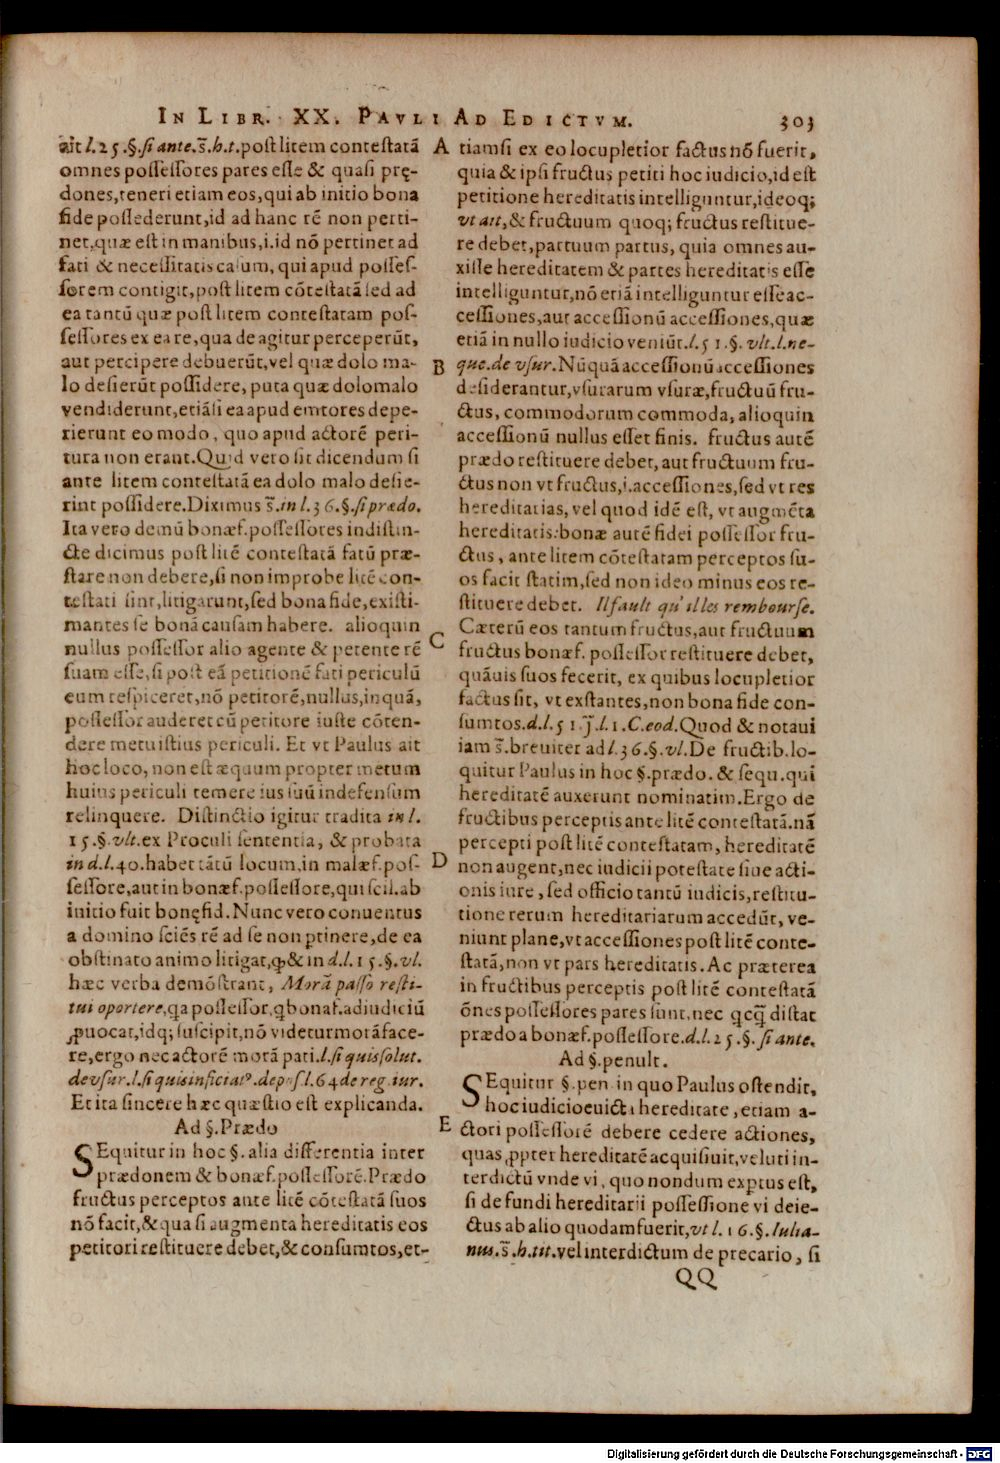 IN LIBR. XX. PAVLI AD EDICTVM. 303
ait l.25.§.si ante.s̃.h.t.post litem contestatã
omnes possessores pares esse & quasi prę-
dones,teneri etiam eos,qui ab initio bona
fide possederunt,id ad hanc rẽ non perti-
net,quæ est in manibus,i.id nõ pertinet ad
fati & necessitatis casum, qui apud posses-
sorem contigit,post litem cõtestatã sed ad
ea tantũ quæ post litem contestatam pos-
sessores ex ea re,qua de agitur perceperũt,
aut percipere debuerũt,vel quæ dolo ma-
lo desierũt possidere, puta quæ dolo malo
vendiderunt,etiãsi ea apud emtores depe-
rierunt eo modo, quo apud actorẽ peri-
tura non erant.Quid vero sit dicendum si
ante litem contestatã ea dolo malo desie-
rint possidere.Diximus s̃.in l.36.§.si prædo.
Ita vero demũ bonæf.possessores indistin-
cte dicimus post litẽ contestatã fatũ præ-
stare non debere,si non improbe litẽ con-
testati sint,litigarunt,sed bona fide,existi-
mantes se bonã causam habere. alioquin
nullus possessor alio agente & petente rẽ
suam esse,si post eã petitionẽ fati periculũ
eum respiceret,nõ petitorẽ,nullus,inquã,
possessor auderet cũ petitore iuste cõten-
dere metu istius periculi. Et vt Paulus ait
hoc loco, non est æquum propter metum
huius periculi temere ius suũ indefensum
relinquere. Distinctio igitur tradita in l.
15.§.vlt.ex Proculi sententia, & probata
in d.l.40.habet tãtũ locum,in malæf.pos-
sessore,aut in bonæf.possessore,qui scil.ab
initio fuit bonęfid.Nunc vero conuentus
a domino sciẽs rẽ ad se non ptinere,de ea
obstinato animo litigat,ꝙ & in d.l.15.§.vl.
hæc verba demõstrant, Morã passo resti-
tui oportere,qa possessor,q bonaf.ad iudiciũ
ꝓuocat,idq; suscipit,nõ videtur morã face-
re,ergo nec actorẽ morã pati.l.si quis solut.
de vsur.l.si quis inficiatꝰ.depos.l.64 de reg.iur.
Et ita sincere hæc quæstio est explicanda.
Ad §.Prædo
SEquitur in hoc §. alia differentia inter
prædonem & bonæf.possessorẽ.Prædo
fructus perceptos ante litẽ cõtestatã suos
nõ facit,& quasi augmenta hereditatis eos
petitori restituere debet,& consumtos,et-
A tiamsi ex eo locupletior factus nõ fuerit,
quia & ipsi fructus petiti hoc iudicio,id est
petitione hereditatis intelliguntur,ideoq;
vt ait,& fructuum quoq; fructus restitue-
re debet,partuum partus, quia omnes au-
xisse hereditatem & partes hereditatis esse
intelliguntur,nõ etiã intelliguntur esse ac-
cessiones,aut accessionũ accessiones,quæ
etiã in nullo iudicio veniũt.l.51.§. vlt.l.ne-
B que.de vsur.Nũquã accessionũ accessiones
desiderantur,vsurarum vsuræ,fructuũ fru-
ctus, commodorum commoda, alioquin
accessionũ nullus esset finis. fructus autẽ
prædo restituere debet, aut fructuum fru-
ctus non vt fructus,i.accessiones,sed vt res
hereditarias, vel quod idẽ est, vt augmẽta
hereditatis: bonæ autẽ fidei possessor fru-
ctus, ante litem cõtestatam perceptos su-
os facit statim,sed non ideo minus eos re-
stituere debet. Il fault qu'illes rembourse.
C Cæterũ eos tantum fructus,aut fructuum
fructus bonæf. possessor restituere debet,
quãuis suos fecerit, ex quibus locupletior
factus sit, vt exstantes, non bona fide con-
sumtos.d.l.51.j̃.l.1.C.eod.Quod & notaui
iam s̃.breuiter ad l.36.§.vl.De fructib.lo-
quitur Paulus in hoc §.prædo. & sequ.qui
hereditatẽ auxerunt nominatim.Ergo de
fructibus perceptis ante litẽ contestatã.nã
percepti post litẽ contestatam, hereditatẽ
D non augent,nec iudicii potestate siue acti-
onis iure, sed officio tantũ iudicis,restitu-
tione rerum hereditariarum accedũt, ve-
niunt plane,vt accessiones post litẽ conte-
statã,non vt pars hereditatis. Ac præterea
in fructibus perceptis post litẽ contestatã
õnes possessores pares sunt,nec qcq̃ distat
prædo a bonæf.possessore.d.l.25.§. si ante.
Ad §.penult.
SEquitur §.pen.in quo Paulus ostendit,
hoc iudicio euicta hereditate, etiam a-
E ctori possessorẽ debere cedere actiones,
quas ꝓpter hereditatẽ acquisiuit,veluti in-
terdictũ vnde vi, quo nondum exptus est,
si de fundi hereditarii possessione vi deie-
ctus ab alio quodam fuerit,vt l.16.§.Iulia-
nus.s̃.h.tit.vel interdictum de precario, si
QQ
Digitalisierung gefördert durch die Deutsche Forschungsgemeinschaft - DFG